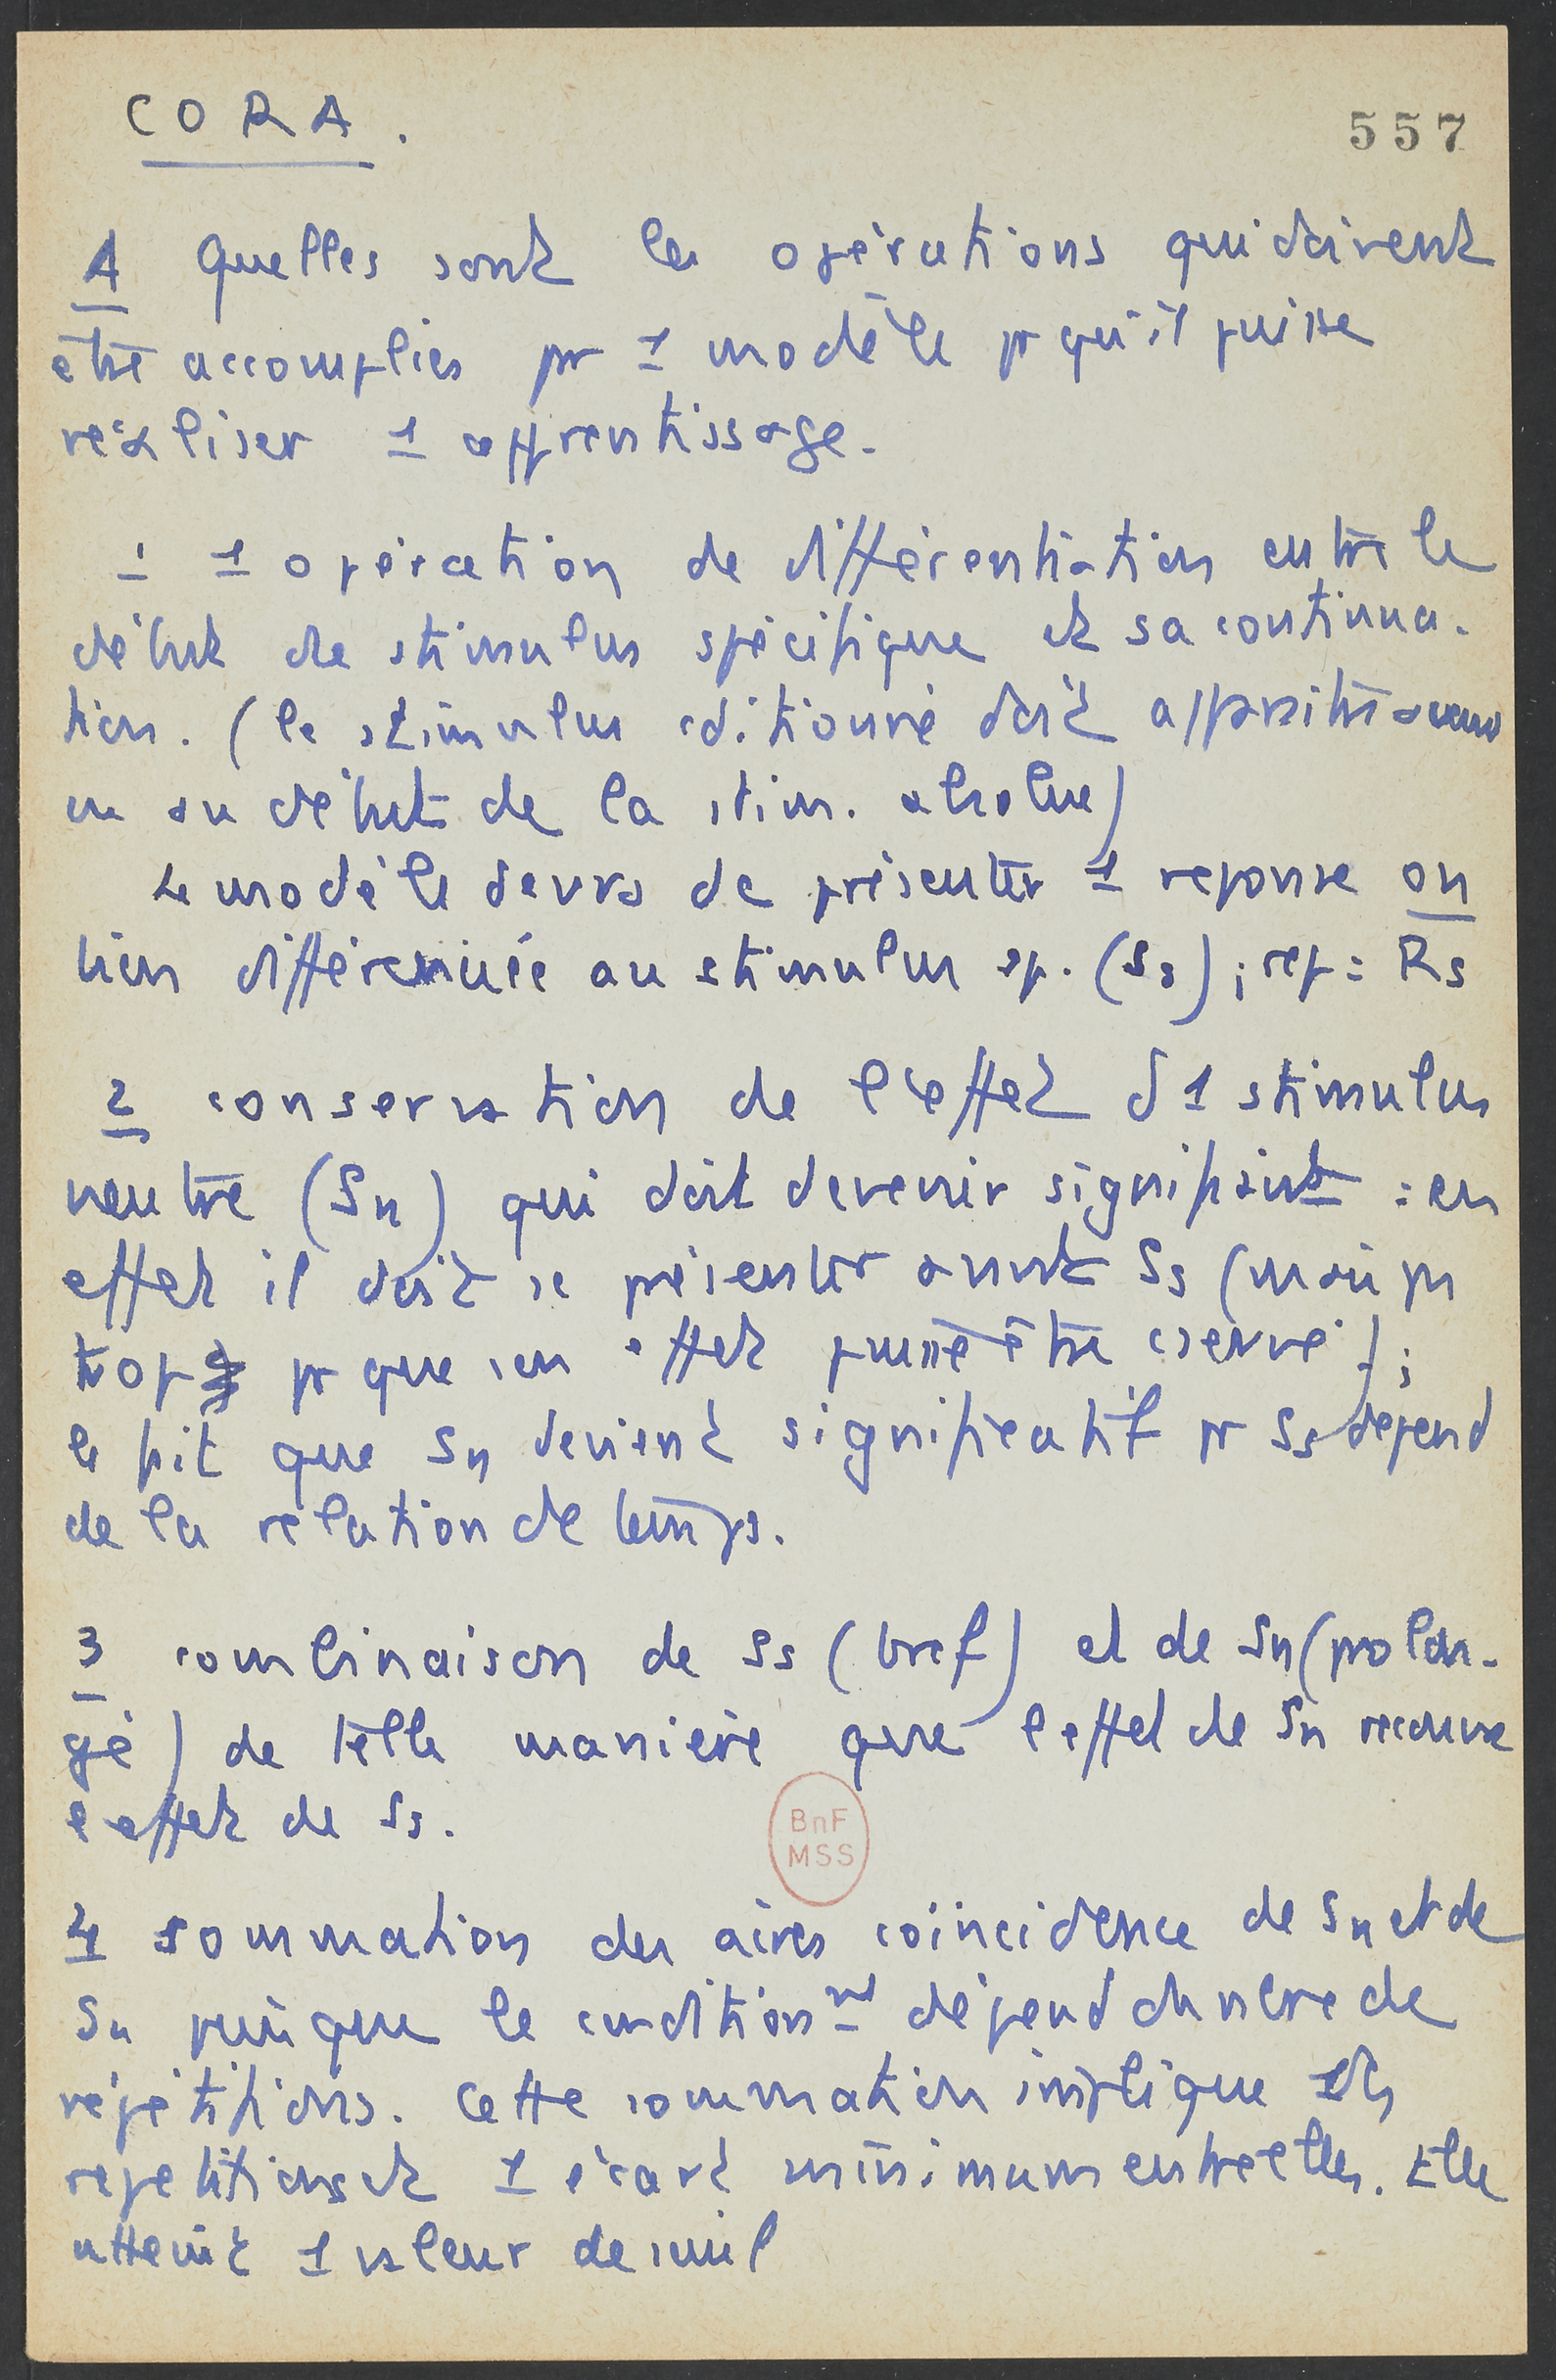 CORA.
557
A Quelles sont les opérations qui doivent
être accomplies par 1 modèle pr qu'il puisse
réaliser 1 apprentissage.
1 1 opération de différentiation entre le
début de stimulus spécifique et sa continua-
tion. (le stimulus cditionné doit apparaître avant
ou au début de la stim. absolue)
Le modèle devra dc présenter 1 réponse on
bien différenciée au stimulus sp. (Ss) ; rep = Rs
2 conservation de l'effet d 1 stimulus
neutre (Sn) qui doit devenir signifiant : en
effet il doit se présenter avant Ss (mais pas
trop pr que son effet puisse être cservé) ;
le fait que Sn devient significatif pr Ss dépend
de la relation de temps.
3 combinaison de Ss (bref) et de Sn (prolon-
gé) de telle manière que l'effet de Sn recouvre
l'effet de Ss.
BnF
MSS
4 sommation des aires coïncidence de Sn et de
Sn puisque le condition nt dépend du nbre de
répétitions. Cette sommation implique
répétitions et 1 écart minimum entre elles. Elle
atteint 1 valeur de seuil